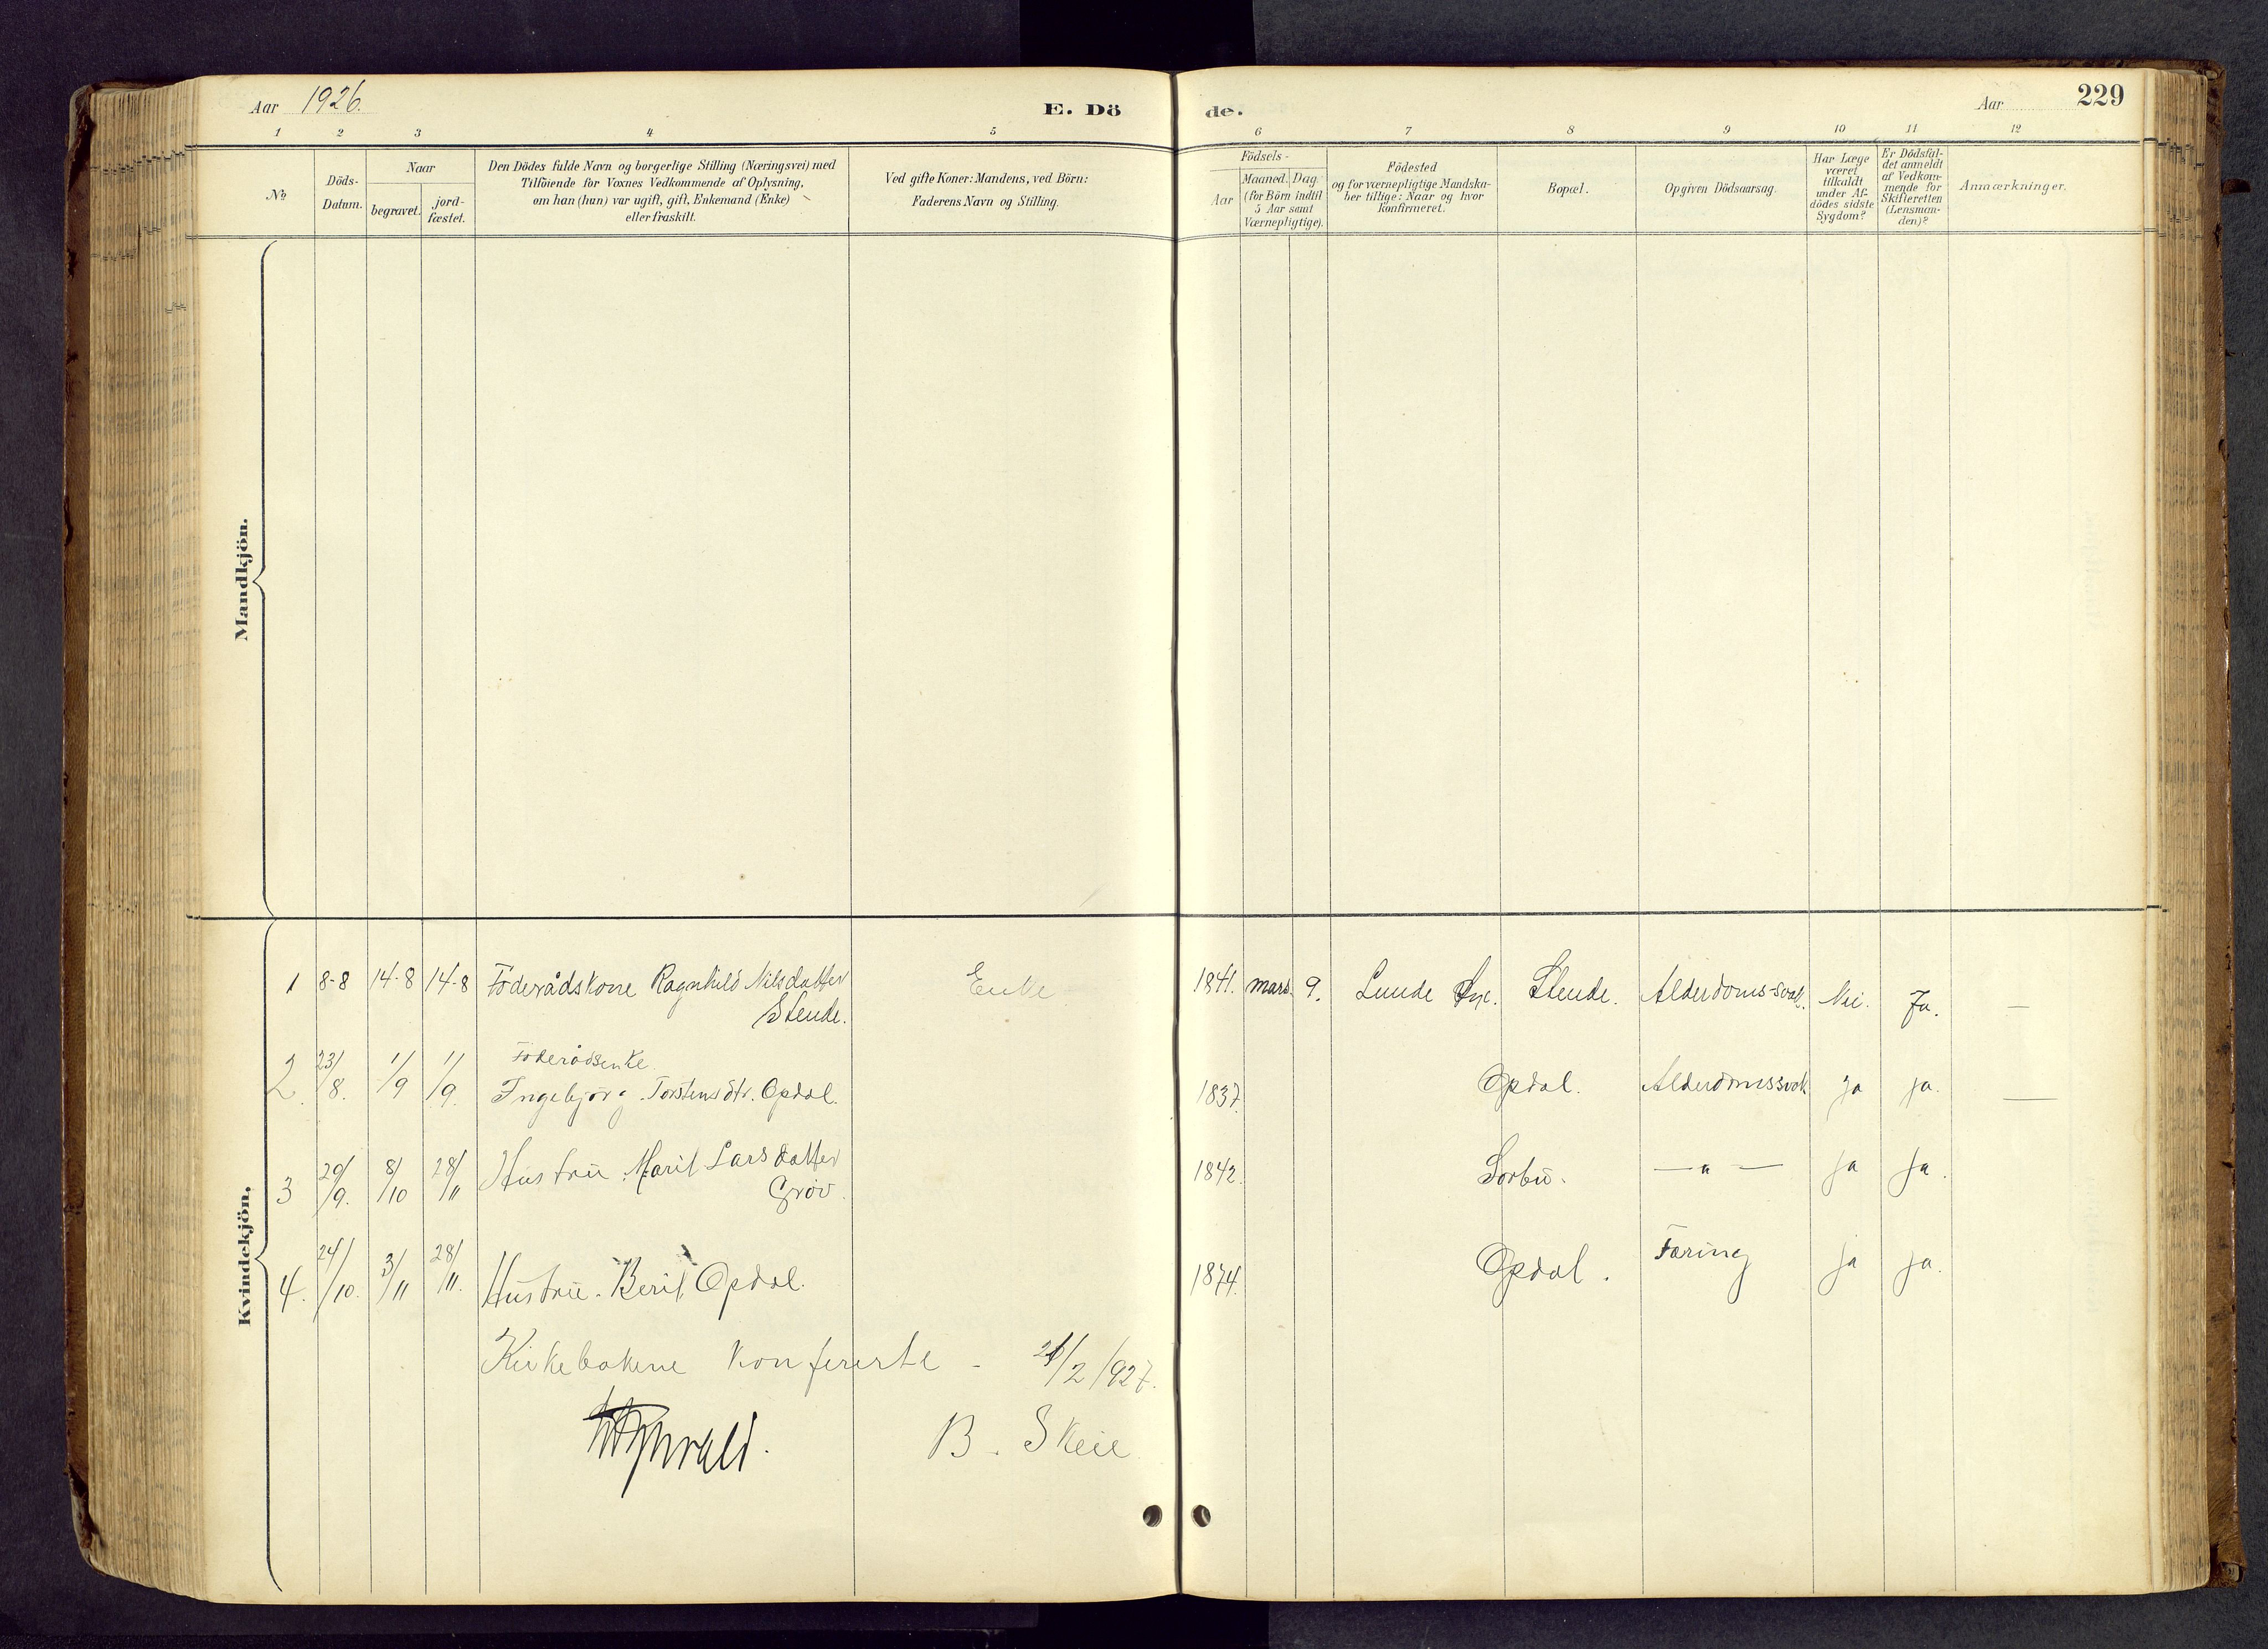 Aar 1926. E. Dö de. Aar 229
1 2 3 4 5 6 7 8 9 10 11 12
No
Döds-
Datum.
Naar
begravet.
jord-
fæstet.
Den Dödes fulde Navn og borgerlige Stilling (Næringsvei) med
Tilföiende for Voxnes Vedkommende af Oplysning,
om han (hun) var ugift, gift, Enkemand (Enke)
eller fraskilt.
Ved gifte Koner: Mandens, ved Börn:
Faderens Navn og Stilling.
Födsels-
Aar
Maaned. Dag
(for Börn indtil
5 Aar samt
Værnepligtige).
Födested
og for værnepligtige Mandska-
ber tillige: Naar og hvor
konfirmeret.
Bopæl.
Opgiven Dödsaarsag.
Har Læge
været
tilkaldt
under Af-
dödes sidste
Sygdom?
Er Dödsfal-
det anmeldt
af Vedkom-
mende for
Skifteretten
(Lensman-
den)?
Anmærkninger.
Mandkjön.
Kvindekjön.
1 8-8 14-8 14-8 Föderådskone Ragnhild Nilsdatter Enke 1841. mars. 9. Lunde Stende. Alderdoms-svak. Nei. Ja. —
Stende.
Föderådsenke
2. 23/8. 1/9 1/9. Ingebjörg Torstensdtr. Opdal. 1837. Opdal. Alderdomssvak ja ja. —
3 29/9. 8/10 28/11 Hustru Marit Larsdatter 1842. Sorbu. — " — ja ja.
Gröv.
4. 24/10. 3/11 28/11. Hustru. Berit Opdal. 1874. Opdal. Tæring ja ja.
Kirkebokene konfererte - /2 1927.
B. Skeie